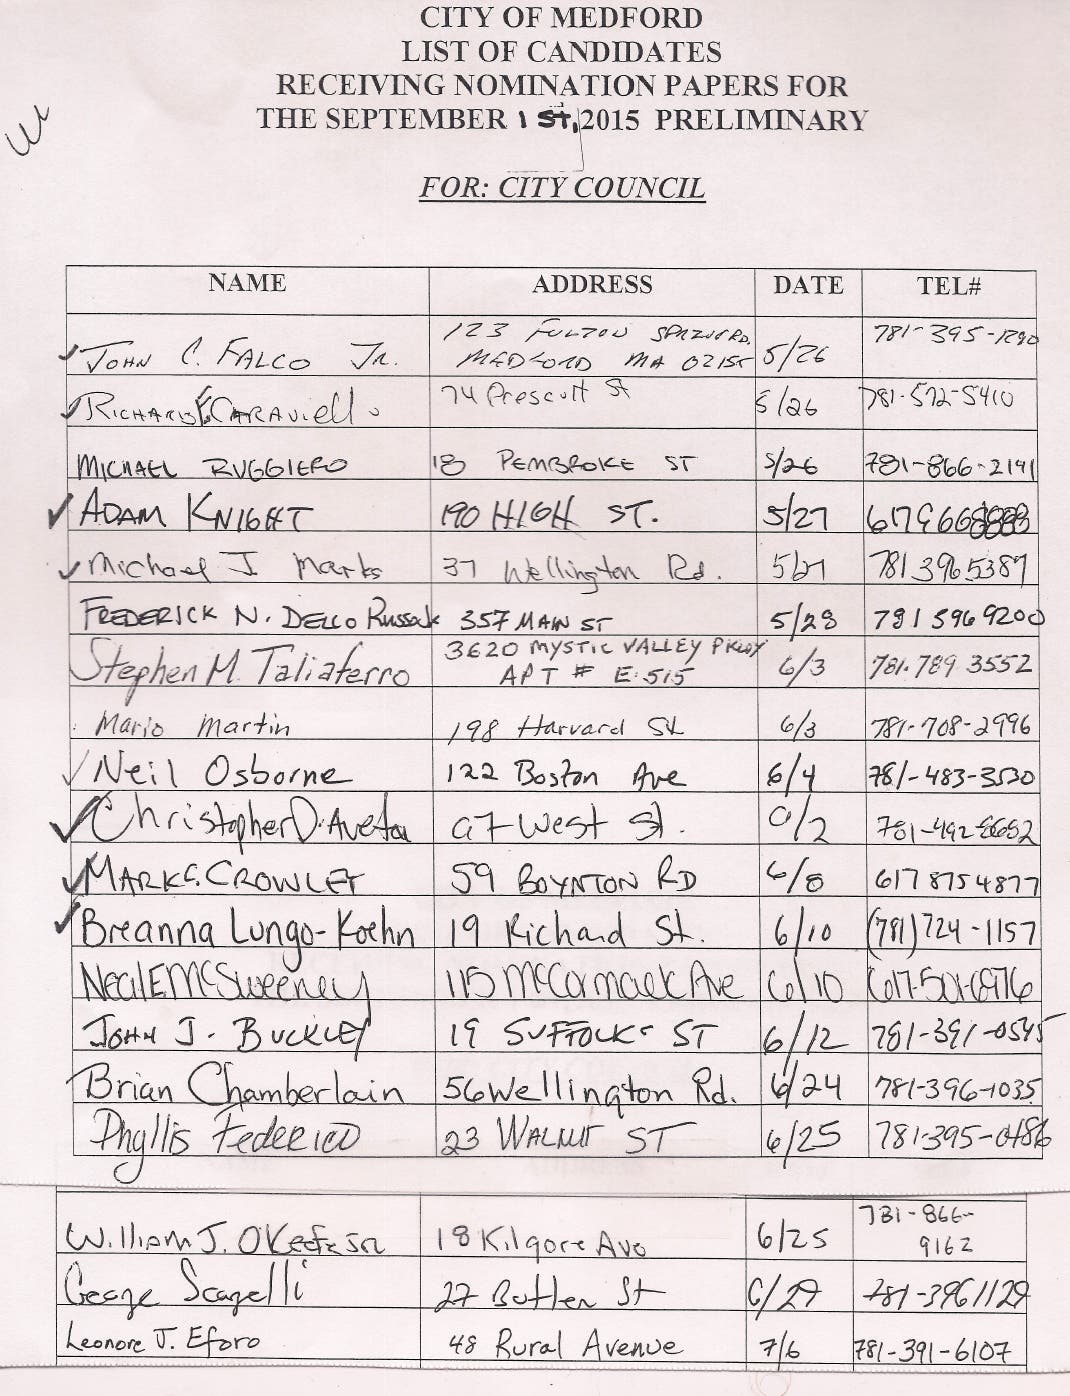 CITY OF MEDFORD
LIST OF CANDIDATES
RECEIVING NOMINATION PAPERS FOR
THE SEPTEMBER 1 ST, 2015 PRELIMINARY
FOR: CITY COUNCIL
NAME ADDRESS DATE TEL#
JOHN C. FALCO JR. 123 FULTON SPRING RD. MEDFORD MA 02155 5/26 781-395-1290
RICHARD F. CARAViello 74 Prescott St 5/26 781-572-5410
MICHAEL RUGGIERO 18 PEMBROKE ST 5/26 781-866-2191
ADAM KNIGHT 190 HIGH ST. 5/27
Michael J Marks 37 Wellington Rd. 5/27 781 396 5387
FREDERICK N. DELLO Russo Jr 357 MAIN ST 5/28 781 396 9200
Stephen M. Taliaferro 3620 MYSTIC VALLEY PKWY APT # E-515 6/3 781-789 3552
Mario Martin 198 Harvard St 6/3 781-708-2996
Neil Osborne 122 Boston Ave 6/4 781-483-3530
Christopher D'Aveta 97 West St. 781-492-8652
MARK C. CROWLEY 59 BOYNTON RD 6/8 617 875 4877
Breanna Lungo-Koehn 19 Richard St. 6/10 (781) 724-1157
Neal E McSweeney 115 McCormack Ave 6/10 617-501-6976
JOHN J. BUCKLEY 19 SUFFOLK ST 6/12 781-391-0545
Brian Chamberlain 56 Wellington Rd. 6/24 781-396-1035
Phyllis FEDERICO 23 WALNUT ST 6/25 781-395-0486
William J. O'Keefe SR 18 Kilgore Ave 6/25 781-866-9162
George Scarpelli 27 Butler St 6/29 781-396 1129
Leonore J. Eforo 48 Rural Avenue 7/6 781-391-6107